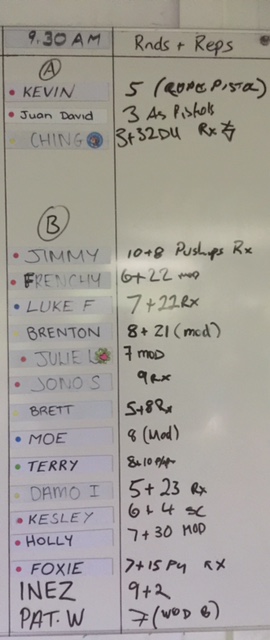 9.30 AM Rnds + Reps
A
KEVIN 5 (
Juan David 3 As Pistols
CHING 3+32DU Rx
B
JIMMY 10+8 Pushups Rx
FRENCHY 6+22 mod
LUKE F 7+22Rx
BRENTON 8+21(mod)
JULIE L 7 MOD
JONO S 9 Rx
BRETT 5+8Rx
MOE 8 (Mod)
TERRY
DAMO I 5+23 Rx
KESLEY 6+4 SC
HOLLY 7+30 MOD
FOXIE 7+15 PU RX
INEZ 9+2
PAT.W 7 (WOD B)